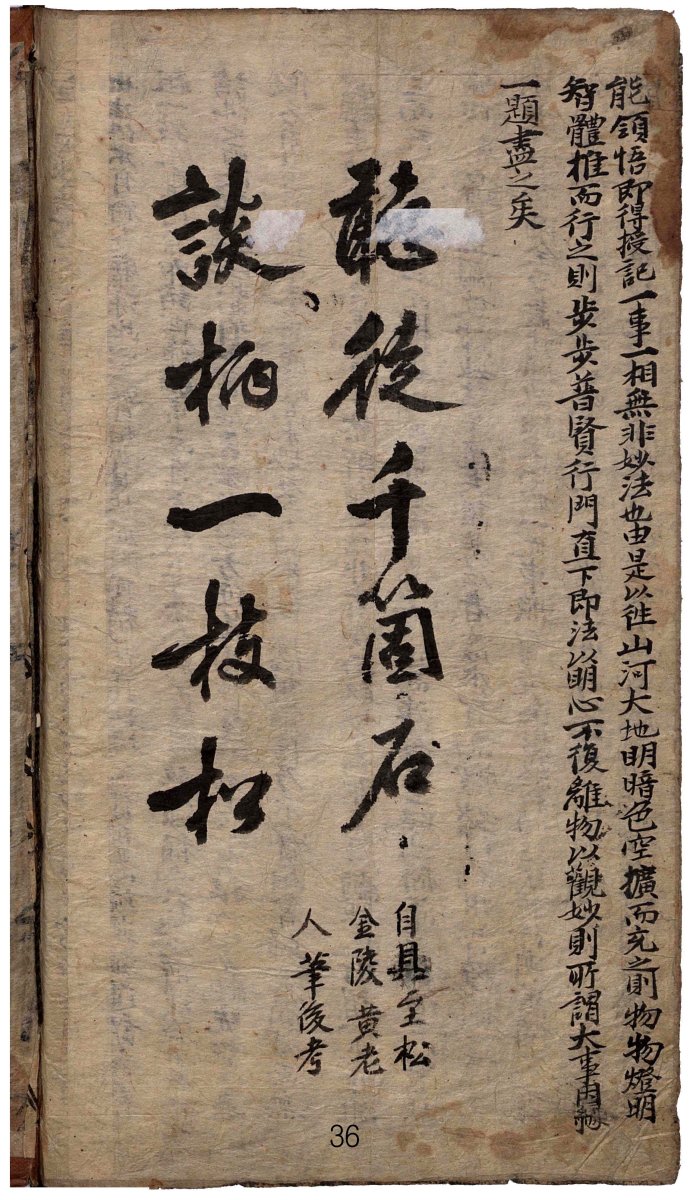 能領悟即得授記一事一相無非妙法也由是以往山河大地明暗色空擴而充之則物物燈明
智體推而行之則步步普賢行門直下即法以明心不復離物以觀妙則所謂大事因緣
一題盡之矣
聽徒千箇石
談柄一枝松
自具至松
金陵黃老
人筆後考
36